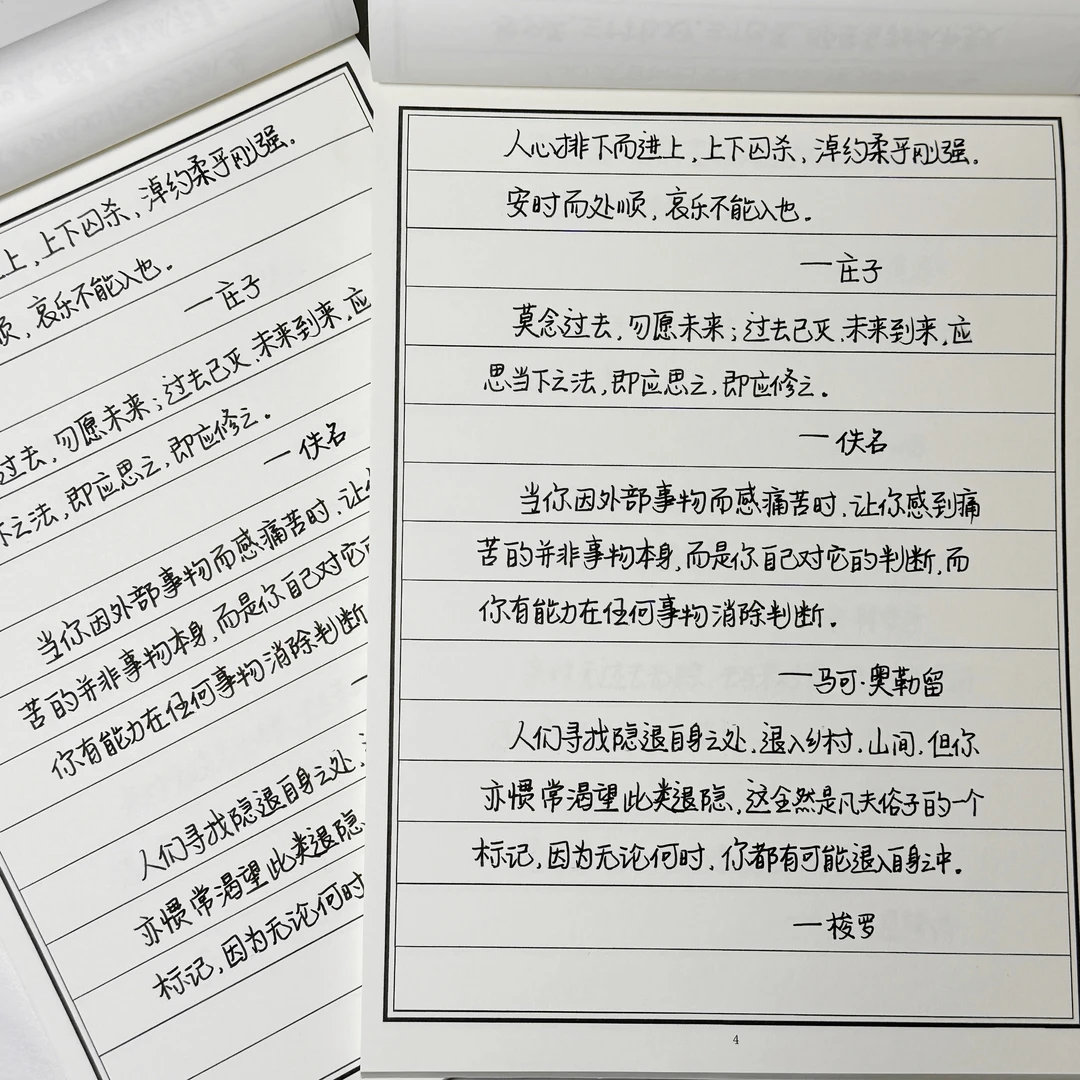 上,上下囚杀,淖约柔乎刚强。
顺,哀乐不能入也。
一庄子
过去,勿愿未来;过去已灭,未来到来,应
下之法,即应思之,即应修之。
一佚名
当你因外部事物而感痛苦时,让
苦的并非事物本身,而是你自己对它
你有能力在任何事物消除判断
人们寻找隐退自身之处,
亦惯常渴望此类退隐
标记,因为无论何时
人心排下而进上,上下囚杀,淖约柔乎刚强。
安时而处顺,哀乐不能入也。
一庄子
莫念过去,勿愿未来;过去已灭,未来到来,应
思当下之法,即应思之,即应修之。
一佚名
当你因外部事物而感痛苦时,让你感到痛
苦的并非事物本身,而是你自己对它的判断,而
你有能力在任何事物消除判断。
一马可·奥勒留
人们寻找隐退自身之处,退入乡村,山间,但你
亦惯常渴望此类退隐,这全然是凡夫俗子的一个
标记,因为无论何时,你都有可能退入自身之中。
一梭罗
4